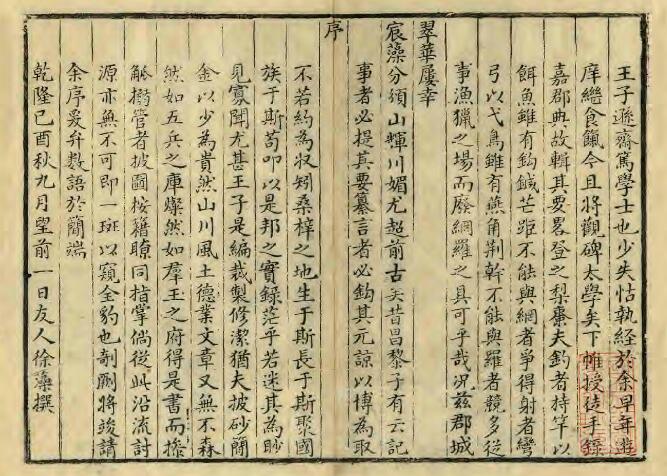 王子遜齋篤學士也少失怙執經於余早年遊
庠繼食餼今且將觀碑太學矣下帷授徒手錄
嘉郡典故輯其要畧登之梨棗夫釣者持竿以
餌魚雖有鈎鍼芒距不能與網者爭得射者彎
弓以弋鳥雖有燕角荆幹不能與羅者競多從
事漁獵之場而廢網羅之具可乎哉況茲郡城
翠華屢幸
宸藻分頒山輝川媚尤超前古矣昔昌黎子有云記
事者必提其要纂言者必鈎其元諒以博為取
序
不若約為收矧桑梓之地生于斯長于斯聚國
族于斯苟叩以是邦之實錄茫乎若迷其為眇
見寡聞尤甚王子是編裁製修潔猶夫披砂簡
金以少為貴然山川風土德業文章又無不森
然如五兵之庫燦然如羣玉之府得是書而操
觚搦管者披圖按籍瞭同指掌倘從此沿流討
源亦無不可即一斑以窺全豹也剞劂將竣請
余序爰弁數語於簡端
乾隆己酉秋九月望前一日友人徐藻撰